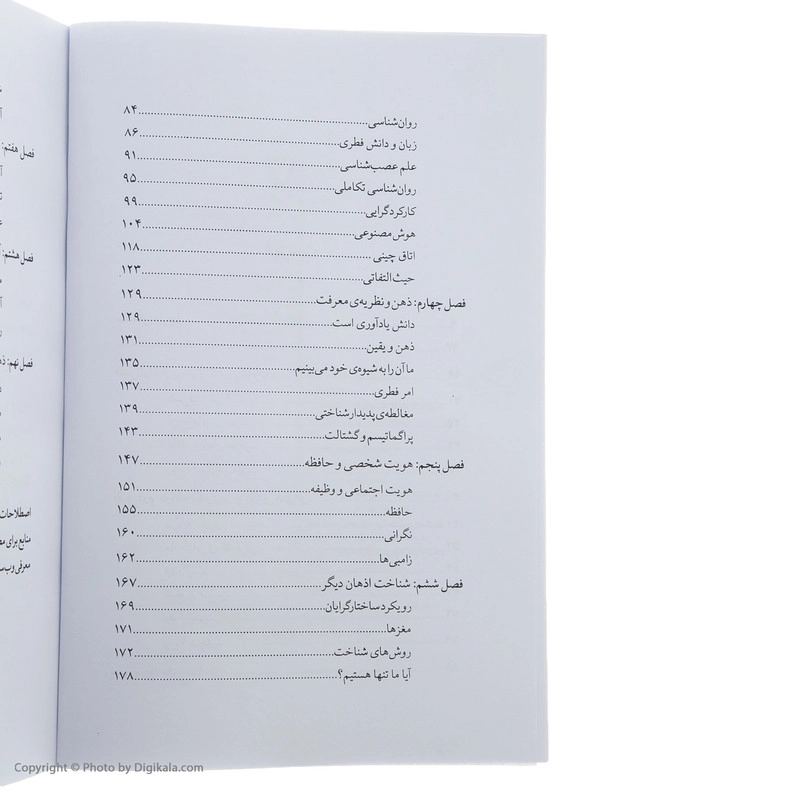 روان‌شناسی........................................................۸۴
زبان و دانش فطری........................................................۸۶
علم عصب‌شناسی........................................................۹۱
روان‌شناسی تکاملی........................................................۹۵
کارکردگرایی........................................................۹۹
هوش مصنوعی........................................................۱۰۴
اتاق چینی........................................................۱۱۸
حیث‌التفاتی........................................................۱۲۳
فصل چهارم: ذهن و نظریه‌ی معرفت........................................................۱۲۹
دانش یادآوری است........................................................۱۲۹
ذهن و یقین........................................................۱۳۱
ما آن را به شیوه‌ی خود می‌بینیم........................................................۱۳۵
امر فطری........................................................۱۳۷
مغالطه‌ی پدیدارشناختی........................................................۱۳۹
پراگماتیسم و گشتالت........................................................۱۴۳
فصل پنجم: هویت شخصی و حافظه........................................................۱۴۷
هویت اجتماعی و وظیفه........................................................۱۵۱
حافظه........................................................۱۵۵
نگرانی........................................................۱۶۰
زامبی‌ها........................................................۱۶۲
فصل ششم: شناخت اذهان دیگر........................................................۱۶۷
رویکرد ساختارگرایان........................................................۱۶۹
مغزها........................................................۱۷۱
روش‌های شناخت........................................................۱۷۲
آیا ما تنها هستیم؟........................................................۱۷۸
فصل هفتم:
فصل هشتم:
فصل نهم:
اصطلاحات
منابع برای
معرفی
Copyright © Photo by Digikala.com